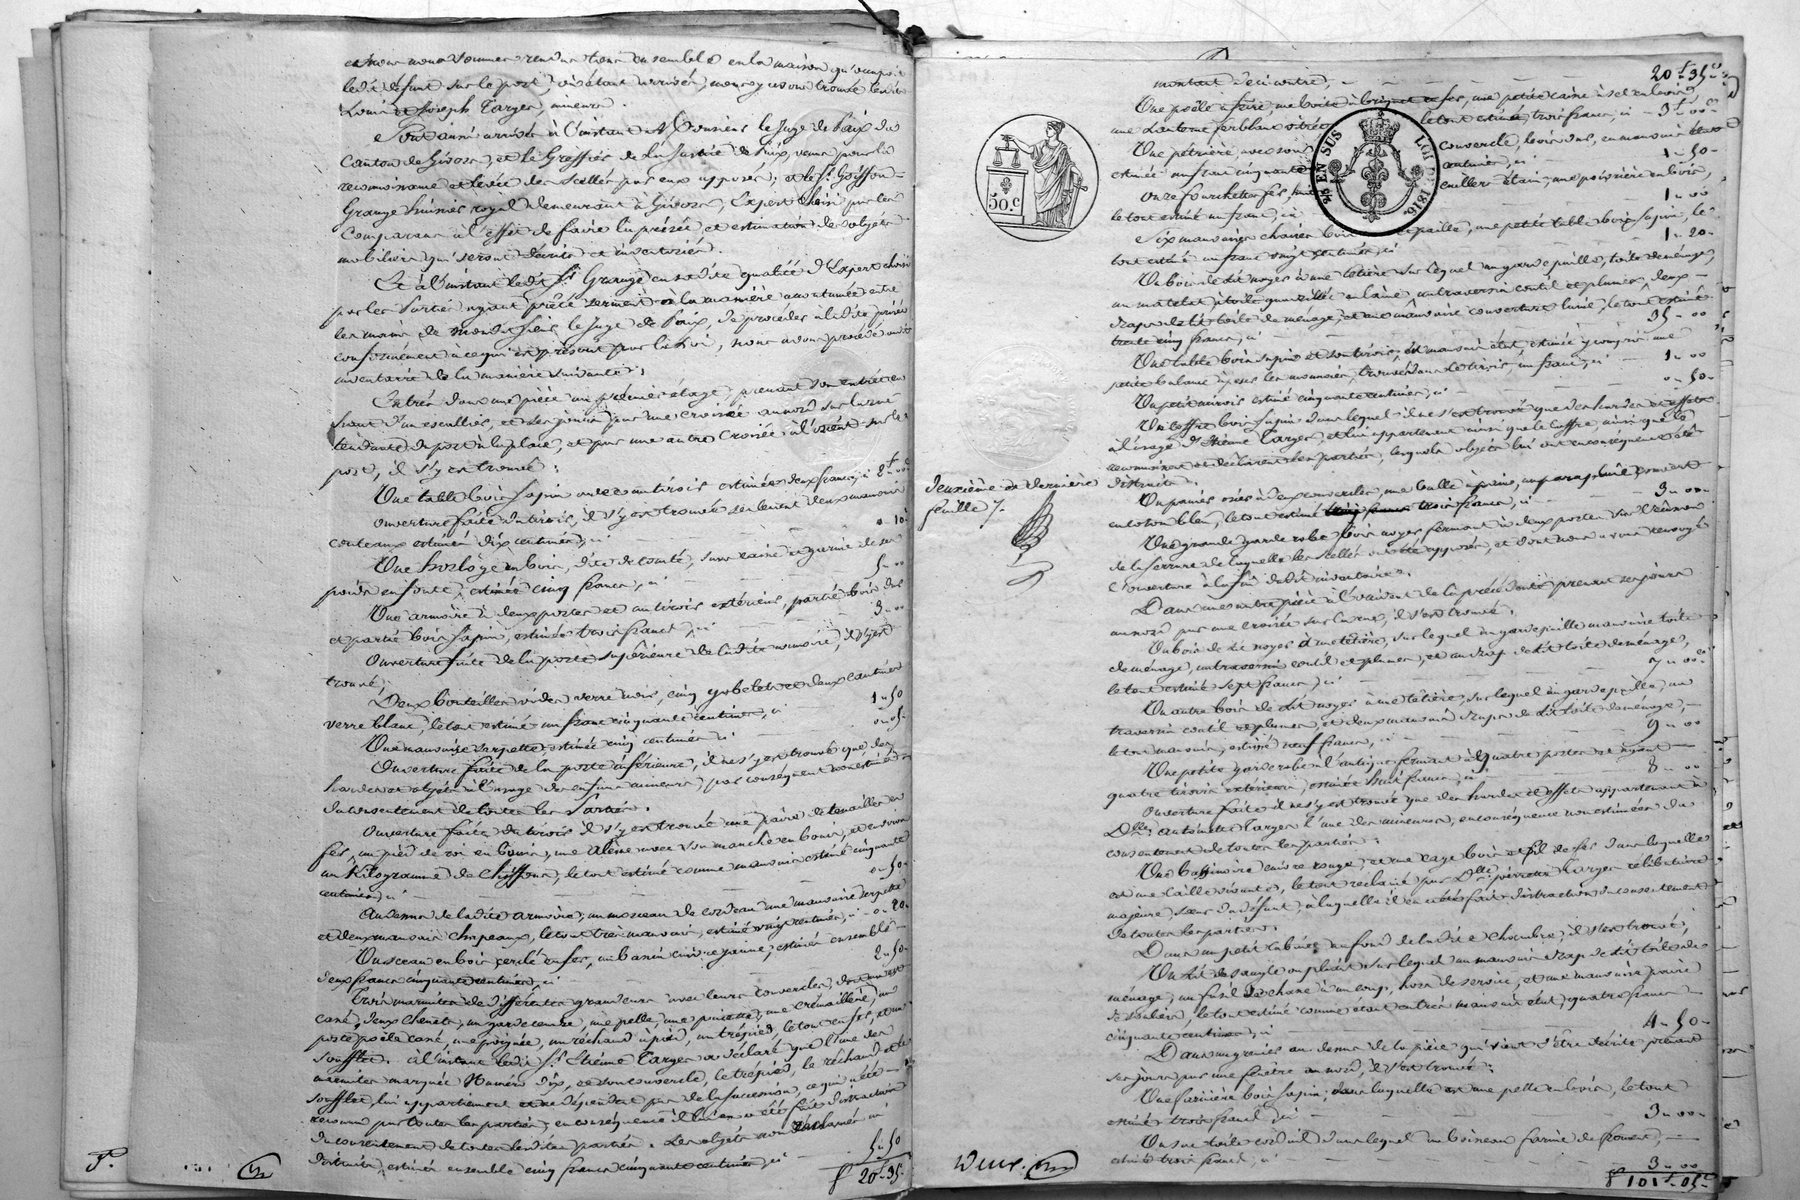 et nous nous sommes rendus tous ensemble en la maison qu'occupait
ledit défunt sur le port, où étant arrivés, nous y avons trouvé lesdits
Louis et Joseph Targer, mineurs.
Sont aussi arrivés à l'instant Monsieur le Juge de Paix du
Canton de Givors, et le Greffier de la Justice de Paix, venus pour la
reconnaissance et levée des scellés par eux apposés; et le Sr.
Grange huissier royal demeurant à Givors, Expert choisi par les
Comparans à l'effet de faire la prisée et estimation des objets
mobiliers qui seront décrits et inventoriés.
Et à l'instant ledit Sr. Grange en sadite qualité d'Expert choisi
par les Parties ayant prêté serment en la manière accoutumée entre
les mains de mondit sieur le Juge de Paix, de procéder à ladite prisée
conformément à ce qui est prescrit par la Loi, nous avons procédé audit
inventaire de la manière suivante:
Entrés dans une pièce au premier étage, prenant son entrée en
haut d'un escalier, et ses jours par une croisée au nord sur la rue
tendante du port à la place, et par une autre croisée à l'orient sur le
port, il s'y est trouvé:
Une table bois sapin avec un tiroir estimée deux francs, ci 2f 00c
Ouverture faite du tiroir, il s'y est trouvé seulement deux mauvais
couteaux estimés dix centimes, ci 0 - 10
Une horloge en bois, dite de comté, sans caisse et garnie de ses
poids en fonte, estimée cinq francs, ci 5 - 00
Une armoire à deux portes et un tiroir extérieur, partie bois dur
et partie bois sapin, estimée trois francs, ci 3 - 00
Ouverture faite de la porte supérieure de ladite armoire, il s'y est
trouvé,
Deux bouteilles vides verre noir, cinq gobelets et deux
verre blanc, le tout estimé un franc cinquante centimes, ci 1 - 50
Une mauvaise serpette, estimée cinq centimes ci 0 - 05
Ouverture faite de la porte inférieure, il ne s'y est trouvé que des
hardes et objets à l'usage des enfans mineurs, par conséquent non estimés
du consentement de toutes les Parties.
Ouverture faite du tiroir il s'y est trouvé une paire de tenailles en
fer, un pied de roi en bois, une alène avec son manche en bois, et environ
un Kilogramme de chiffons, le tout estimé comme mauvais cinquante
centimes, ci 0 - 50
Au dessus de ladite armoire, un morceau de cordeau une mauvaise serpette
et deux mauvais chapeaux, le tout très mauvais, estimé vingt centimes, ci 0 - 20
Un sceau en bois cerclé en fer, un bassin cuivre jaune, estimés ensemble
deux francs cinquante centimes, ci 2 - 50
Trois marmites de différentes grandeurs avec leurs couvercles, dont un est
cassé, deux chenets, un garde cendre, une pelle, une pincette, une crémaillère, un
porte poële cassé, une poignée, un réchaud à pied, un trépied, le tout en fer, et un
soufflet. à l'instant ledit Sr. Etienne Targer a déclaré que l'une des
marmites marquée Numéro dix, et son couvercle, le trépied, le réchaud et le
soufflet, lui appartiennent et ne dépendent pas de la succession, ce qui a été
reconnu par toutes les parties, en conséquence il lui en a été fait distraction
du consentement de toutes lesdites parties. Les objets non réclamés ni
distraits, estimés ensemble cinq francs cinquante centimes, ci 5 - 50
20f 35c
Deuxième et dernière
feuille 7.
50.c
EN SUS LOI DE 1816
montant d'ci contre, 20f 35c
Une poële à frire, une petite caisse à sel en bois,
une Lanterne ferblanc vitrée, le tout estimé trois francs, ci 3f 00c
Une pétrière avec son couvercle, bois dur, en mauvais
estimée un franc cinquante centimes, ci 1 - 50
Onze fourchettes fer, cuillers étain, une poivrière en bois,
le tout estimé un franc, ci 1 - 00
Six mauvaises chaises bois et paille, une petite table bois sapin, le
tout estimé un franc vingt centimes, ci 1 - 20
Un bois de lit noyer à une tétière sur lequel un garde paille, toile de ménage,
un matelat, un traversin coutil et plumes, deux
draps de lit toile de ménage, et une mauvaise couverture laine, le tout estimé
trente cinq francs, ci 35 - 00
Une table bois sapin et son tiroir, en mauvais état, estimée y compris une
petite balance à peser les monnaies, trouvée dans le tiroir, un franc, ci 1 - 00
Un petit miroir estimé cinquante centimes, ci 0 - 50
Un coffre bois sapin dans lequel il ne s'est trouvé que des hardes et effets
à l'usage d'Etienne Targer, et lui appartenant ainsi que le coffre, ainsi que le
reconnaissent et déclarent les parties, lesquels objets lui ont en conséquence été
distraits.
Un panier osier à deux couvercles, une balle à peser, un parapluie couvert
en coton bleu, le tout estimé trois francs, ci 3 - 00
Une grande garde robe bois noyer fermant à deux portes sur l'
de la serrure de laquelle les scellés ont été apposés, et dont nous avons renvoyé
l'ouverture à la fin dudit inventaire.
Dans une autre pièce à l'occident de la précédente prenant ses jours
au nord par une croisée sur la rue, il s'est trouvé.
Un bois de lit noyer à une tétière, sur lequel un garde paille mauvaise toile
de ménage, un traversin coutil et plumes, et un drap de lit toile de ménage,
le tout estimé sept francs, ci 7 - 00
Un autre bois de lit noyer à une tétière, sur lequel un garde paille, un
traversin coutil et plumes, et deux mauvais draps de lit toile de ménage,
le tout mauvais, estimé neuf francs, ci 9 - 00
Une petite garde robe à l'antique fermant à quatre portes et ayant
quatre tiroirs extérieurs, estimée huit francs, ci 8 - 00
Ouverture faite il ne s'y est trouvé que des hardes et effets appartenant à
Dlle. Antoinette Targer l'une des mineures, en conséquence non estimées du
consentement de toutes les parties.
Une bassinoire cuivre rouge, et une cage bois et fil de fer dans laquelle
est une caille vivante, le tout réclamé par Dlle. pierrette Targer célibataire
majeure, sœur du défunt, à laquelle il en a été fait distraction du consentement
de toutes les parties.
Dans un petit cabinet au fond de ladite chambre, il s'est trouvé,
Un lit de sangle ou pliant sur lequel un mauvais drap de lit toile de
ménage, un fusil de chasse à un coup, hors de service, et une mauvaise paire
de souliers, le tout estimé comme étant en très mauvais état, quatre francs
cinquante centimes, ci 4 - 50
Dans un grenier au dessus de la pièce qui vient d'être décrite prenant
ses jours par une fenêtre au nord, il s'est trouvé:
Une farinière bois sapin, dans laquelle est une pelle en bois, le tout
estimé trois francs, ci 3 - 00
Un sac toile dans lequel un boisseau farine de froment,
estimé trois francs, ci 3 - 00
101f 05c